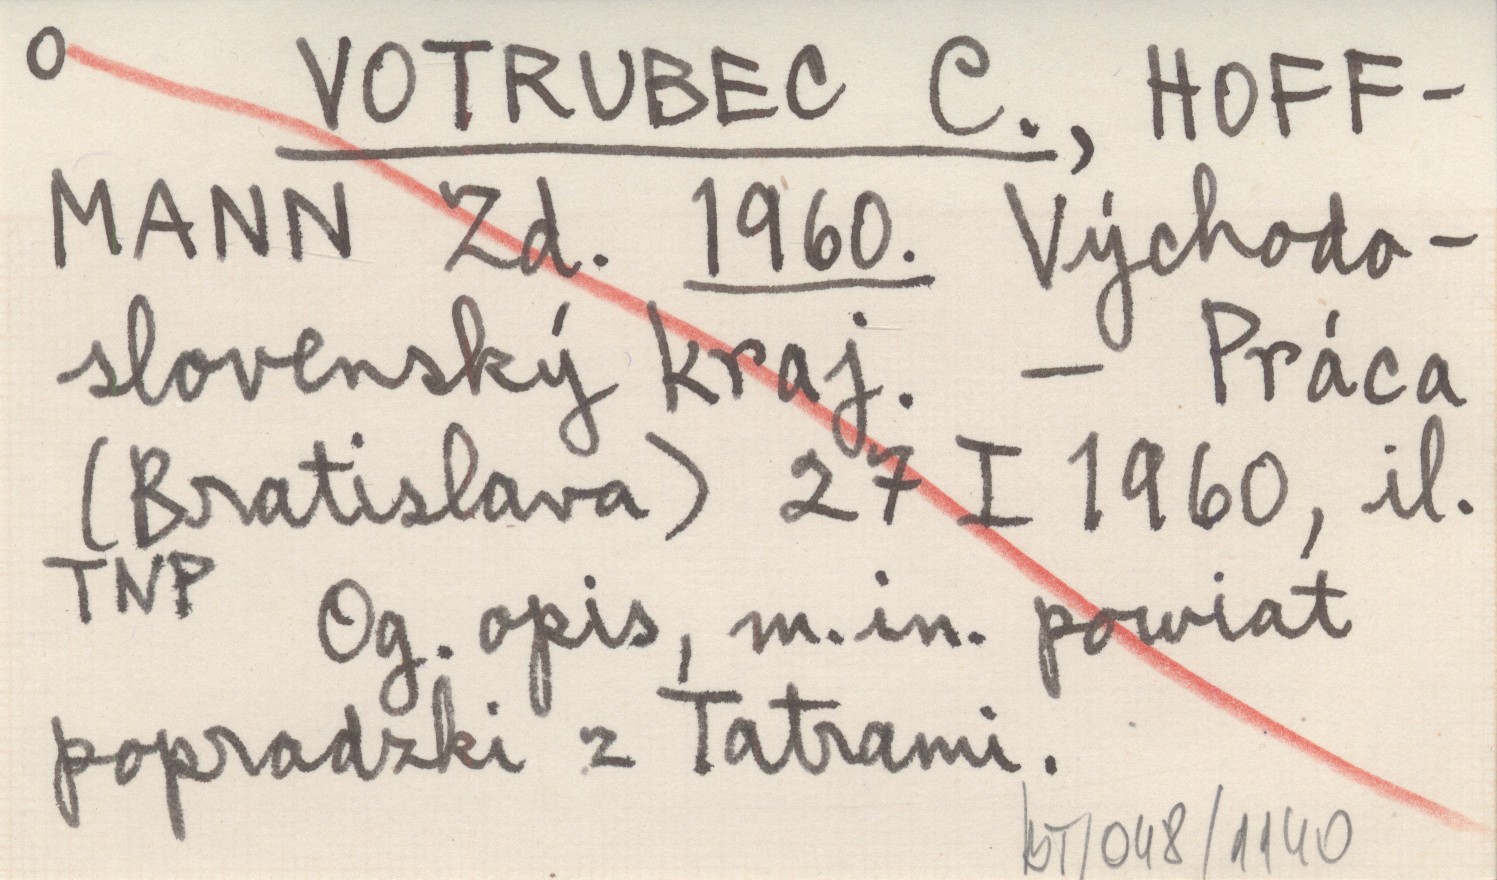 O VOTRUBEC C., HOFF-
MANN Zd. 1960. Východo-
slovenský kraj. — Práca
(Bratislava) 27 I 1960, il.
TNP
Og. opis, m.in. powiat
popradzki z Tatrami.
bT/048/1140